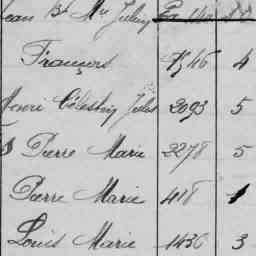 Jean Bt
François 46 4
Henri Célestin Jules 2093 5
Pierre Marie 2278 5
Pierre Marie 418 1
Louis Marie 1436 3